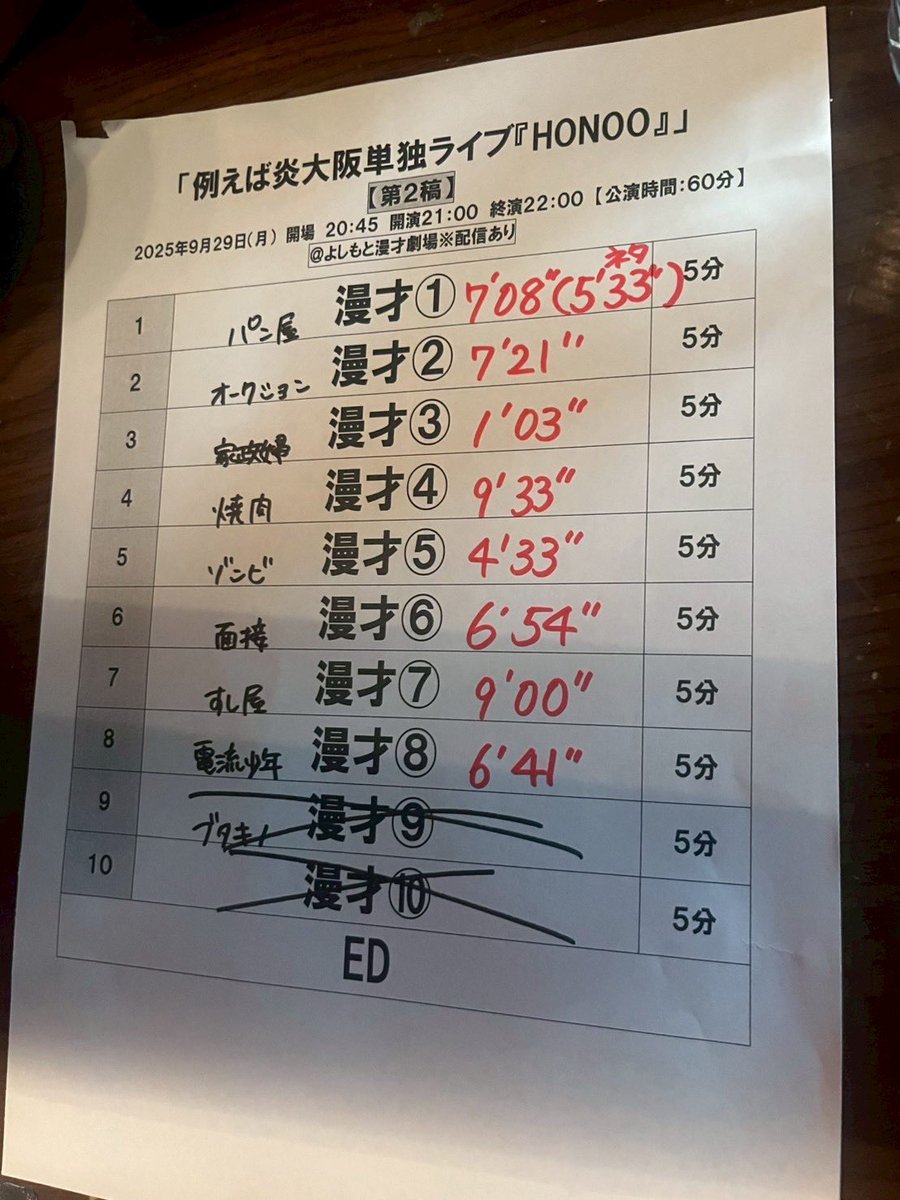 「例えば炎大阪単独ライブ『HONOO』」
【第2稿】
2025年9月29日(月) 開場 20:45 開演21:00 終演22:00 【公演時間:60分】
@よしもと漫才劇場※配信あり
1 パン屋 漫才① 7'08"(5'33") ネタ 5分
2 オークション 漫才② 7'21" 5分
3 家政婦 漫才③ 1'03" 5分
4 焼肉 漫才④ 9'33" 5分
5 ゾンビ 漫才⑤ 4'33" 5分
6 面接 漫才⑥ 6'54" 5分
7 すし屋 漫才⑦ 9'00" 5分
8 電流少年 漫才⑧ 6'41" 5分
9 ブタキノ 漫才⑨ 5分
10 漫才⑩ 5分
ED